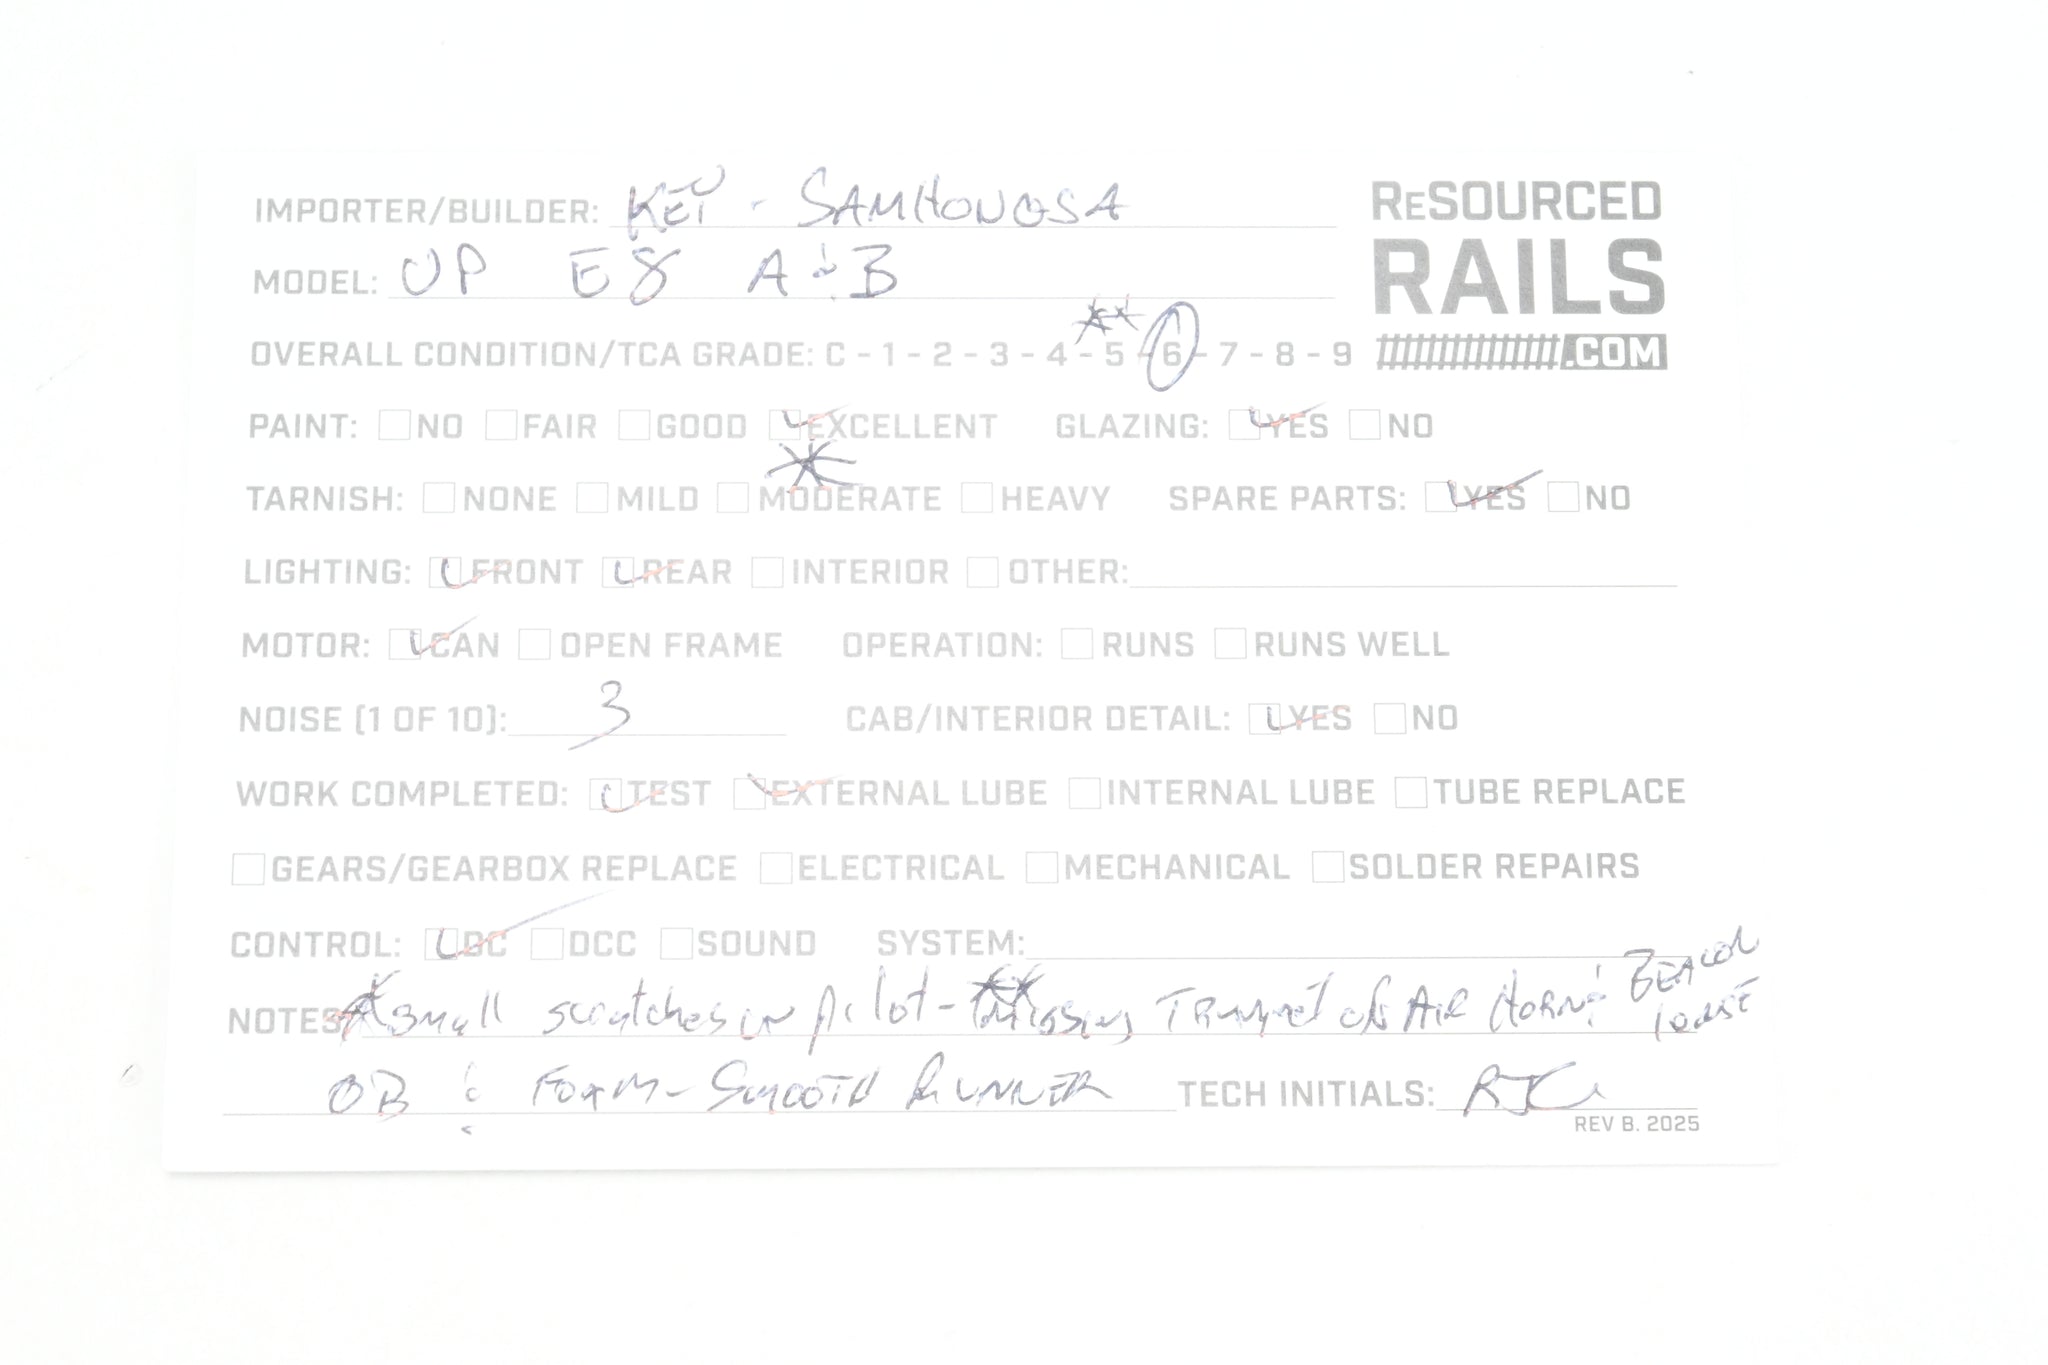 IMPORTER/BUILDER: KEY - SAMHONGSA
RESOURCED
RAILS
.COM
MODEL: UP E8 A & B
**
OVERALL CONDITION/TCA GRADE: C - 1 - 2 - 3 - 4 - 5 - 6 - 7 - 8 - 9
PAINT: NO FAIR GOOD EXCELLENT GLAZING: YES NO
*
TARNISH: NONE MILD MODERATE HEAVY SPARE PARTS: YES NO
LIGHTING: FRONT REAR INTERIOR OTHER:
MOTOR: CAN OPEN FRAME OPERATION: RUNS RUNS WELL
NOISE (1 OF 10): 3 CAB/INTERIOR DETAIL: YES NO
WORK COMPLETED: TEST EXTERNAL LUBE INTERNAL LUBE TUBE REPLACE
GEARS/GEARBOX REPLACE ELECTRICAL MECHANICAL SOLDER REPAIRS
CONTROL: DC DCC SOUND SYSTEM:
NOTES: * Small scratches in pilot - ** missing TRUMPET ON AIR HORN & BEACON loose
OB & FOAM - SMOOTH RUNNER TECH INITIALS: RJC
REV B. 2025